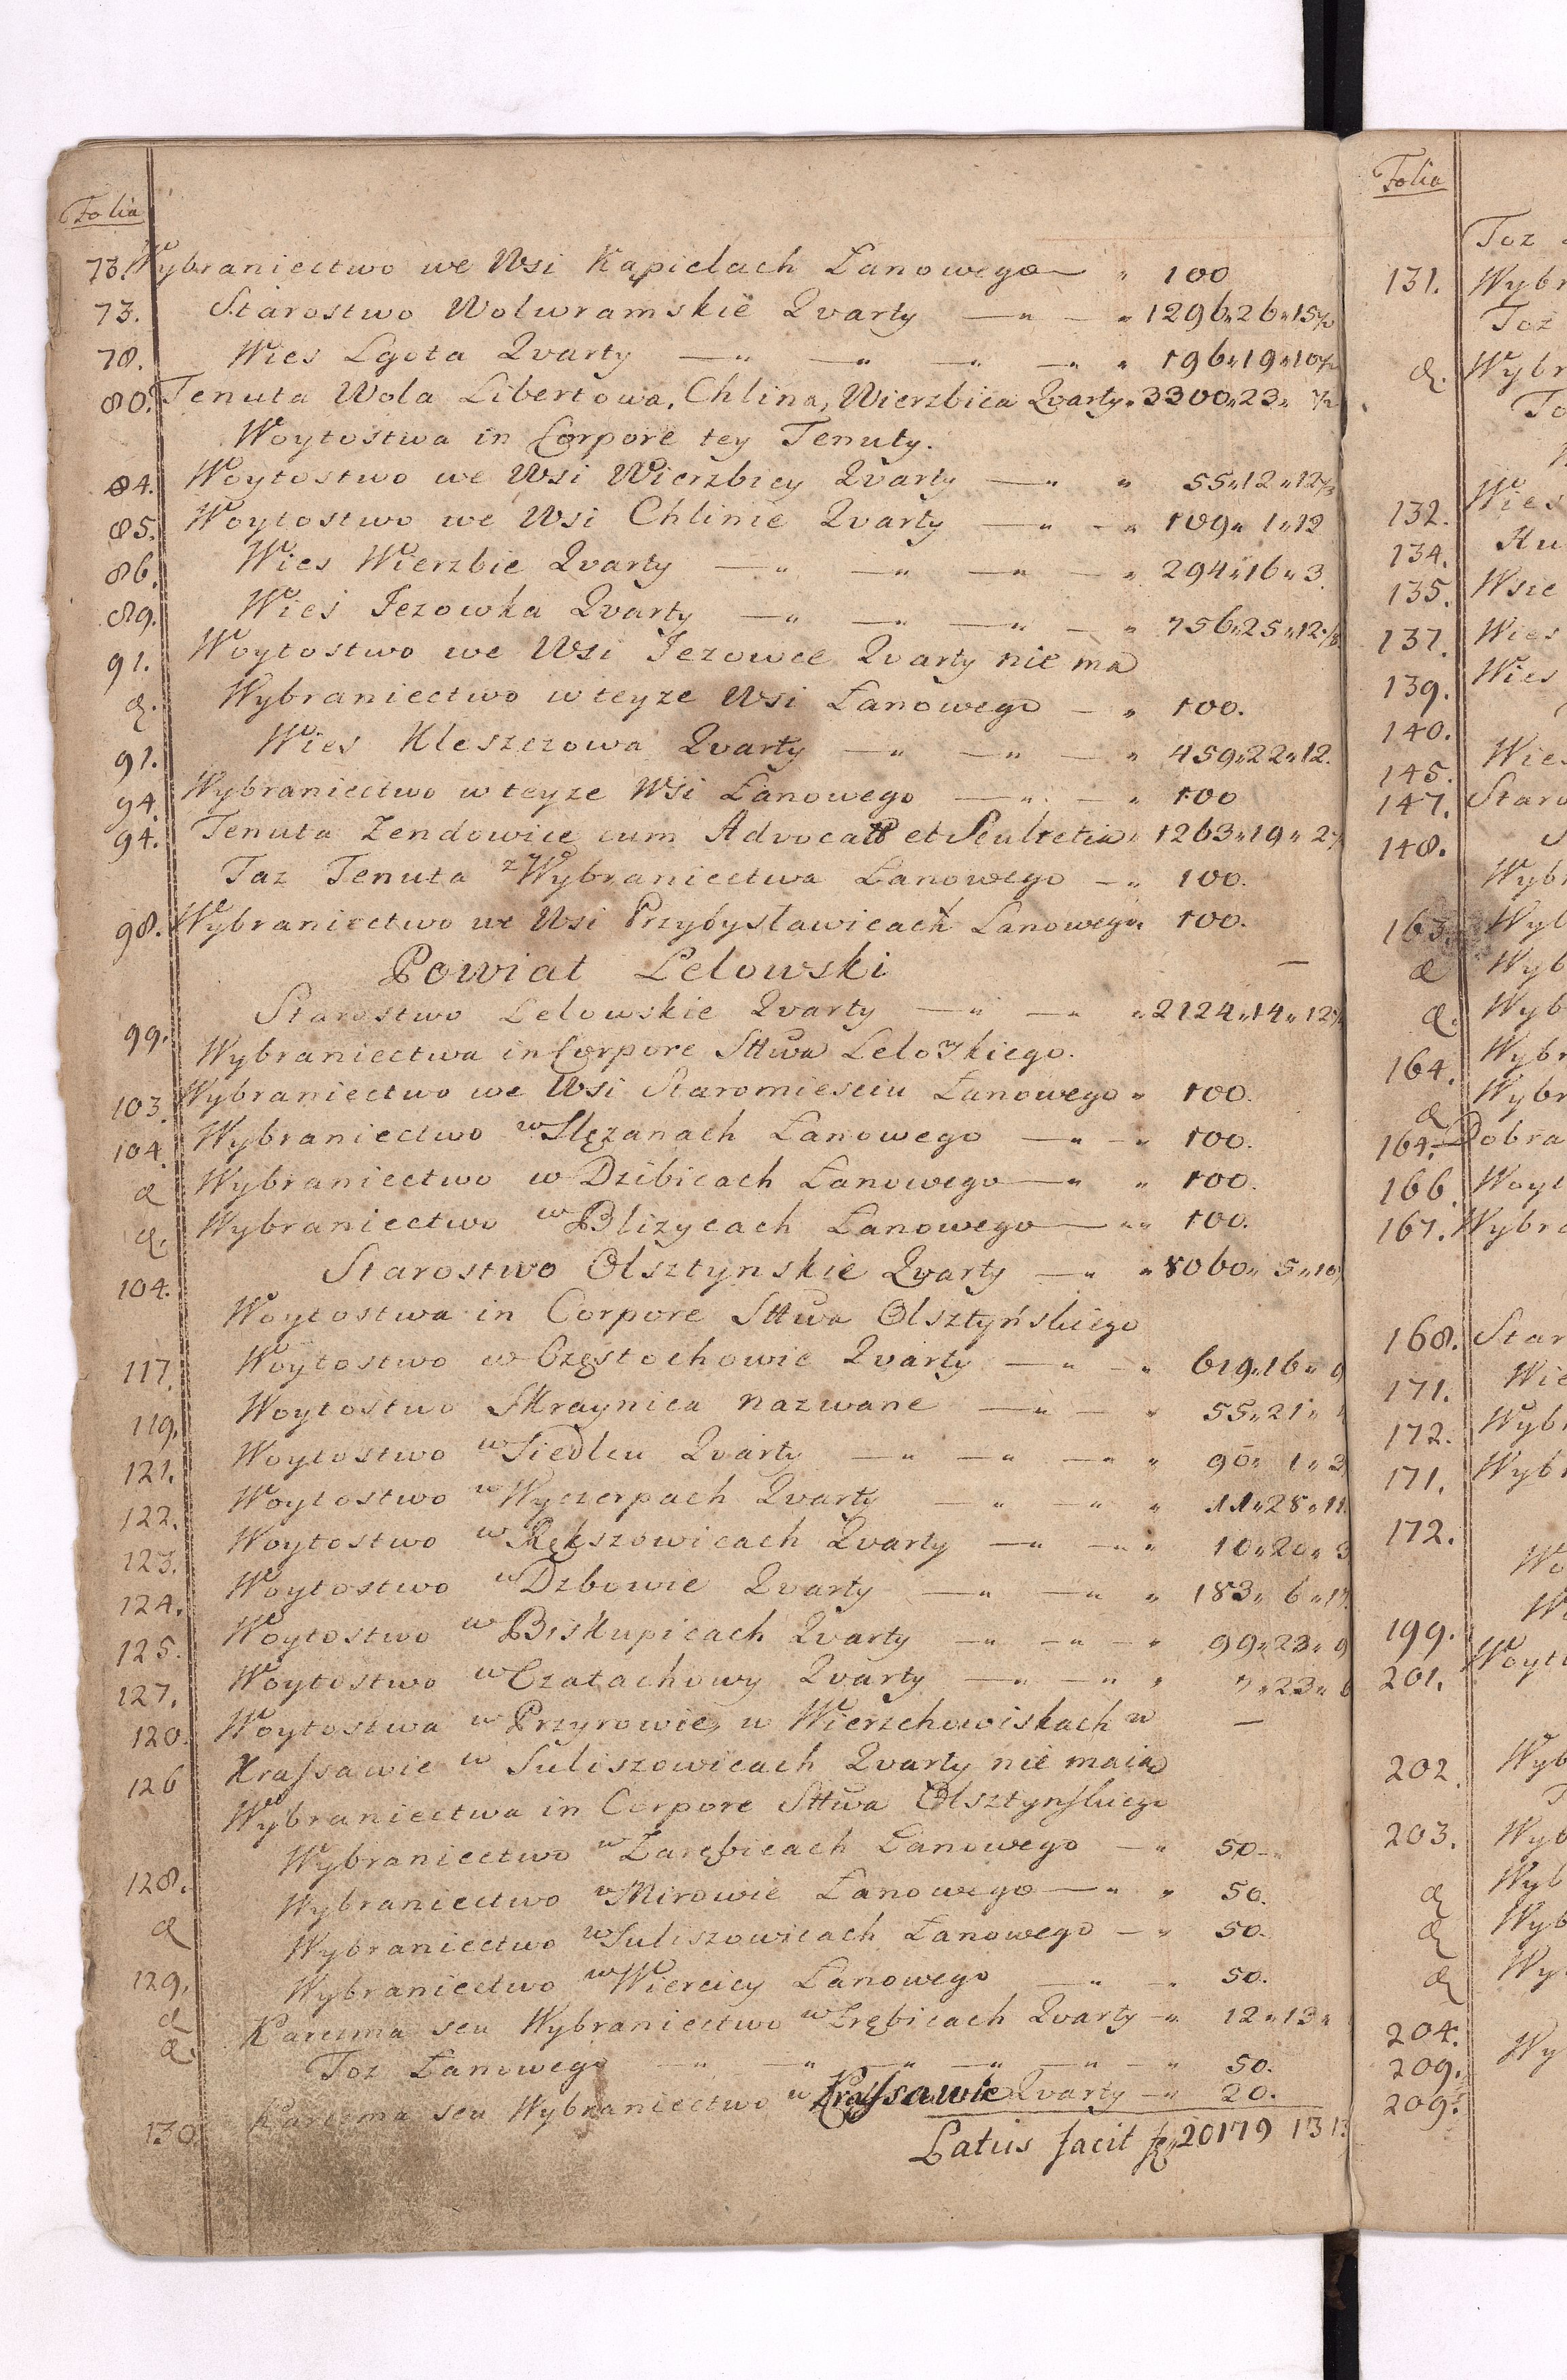 Folia
73. Wybraniectwo we Wsi Kąpielach Łanowego — " 100
73. Starostwo Wolwramskie Qvarty —"— " 1296"26"15½
78. Wies Lgota Qvarty —" —" —" —" " 196"19"10½
80. Tenuta Wola Libertowa, Chlina, Wierzbica Qvarty " 3300"23" ½
Woytostwa in Corpore tey Tenuty.
84. Woytostwo we Wsi Wierzbicy Qvarty —" " 55"12"12⅓
85. Woytostwo we Wsi Chlinie Qvarty —" —" 109" 1"12
86. Wies Wierzbie Qvarty —" —" —" —" 294"16"3
89. Wieś Jezowka Qvarty —" —" —" —" 756"25"12
91. Woytostwo we Wsi Jezowce Qvarty nie ma
d. Wybraniectwo w teyze Wsi Łanowego —" 100.
91. Wies Kleszczowa Qvarty —" —" —" 459"22"12.
94. Wybraniectwo w teyze Wsi Łanowego —" —" 100
94. Tenuta Zendowice cum Advocatia et Scultetia " 1263"19"2
Taz Tenuta z Wybraniectwa Łanowego —" 100.
98. Wybraniectwo we Wsi Przybysławicach Łanowego " 100.
Powiat Lelowski —
99. Starostwo Lelowskie Qvarty —" —" " 2124"14"12
Wybraniectwa in Corpore Sttwa Lelowskiego.
103. Wybraniectwo we Wsi Staromiesciu Łanowego " 100.
104. Wybraniectwo w Slęzanach Łanowego —" —" 100.
d Wybraniectwo w Dzibicach Łanowego —" " 100.
d. Wybraniectwo w Blizycach Łanowego —"" 100.
104. Starostwo Olsztynskie Qvarty —" " 8060" 5"10
Woytostwa in Corpore Sttwa Olsztyńskiego
117. Woytostwo w Częstochowie Qvarty —" —" 619"16"9
119. Woytostwo Skraynica nazwane —" —" 55"21"
121. Woytostwo w Siedlcu Qvarty —" —" —" " 90" 1"3
122. Woytostwo w Wyczerpach Qvarty —" —" " 11"28"11
123. Woytostwo w Rększowicach Qvarty —" —"" 10"20"3
124. Woytostwo w Dzbowie Qvarty —" —" " 183" 6"17
125. Woytostwo w Biskupicach Qvarty —" —" —" 99"23"9
127. Woytostwo w Czatachowy Qvarty —" —" " 7"23"6
120. Woytostwa w Przyrowie, w Wierzchowiskach w —
126 Krassawie w Suliszowicach Qvarty nie maią
Wybraniectwa in Corpore Sttwa Olsztyńskiego
128. Wybraniectwo w Zarębicach Łanowego —" 50—"
d Wybraniectwo w Mirowie Łanowego —" " 50.
129. Wybraniectwo w Suliszowicach Łanowego —" 50.
d Wybraniectwo w Wiercicy Łanowego —" —" 50.
d. Karczma seu Wybraniectwo w Zrębicach Qvarty —" 12"13"
Toz Łanowego —" —" —" —" —" —" 50.
130 Karczma seu Wybraniectwo w Krassawie Qvarty —" 20.
Latus facit 20179 13 13
Folia
Toz
131. Wybr
Toz
d. Wybr
To
132. Wies
134. Hu
135. Wsie
137. Wies
139. Wies
140.
145. Wies
147. Staro
148.
Wybr
163. Wyb
d Wyb
d. Wyb
164. Wybr
d Wybr
164. Dobra
166. Woyt
167. Wybra
168. Star
171. Wie
172. Wybr
171. Wybr
172.
Wo
W
199.
201. Woyt
202. Wyb
203. Wyb
d Wyb
d Wyb
d Wy
204. Wy
209.
209.